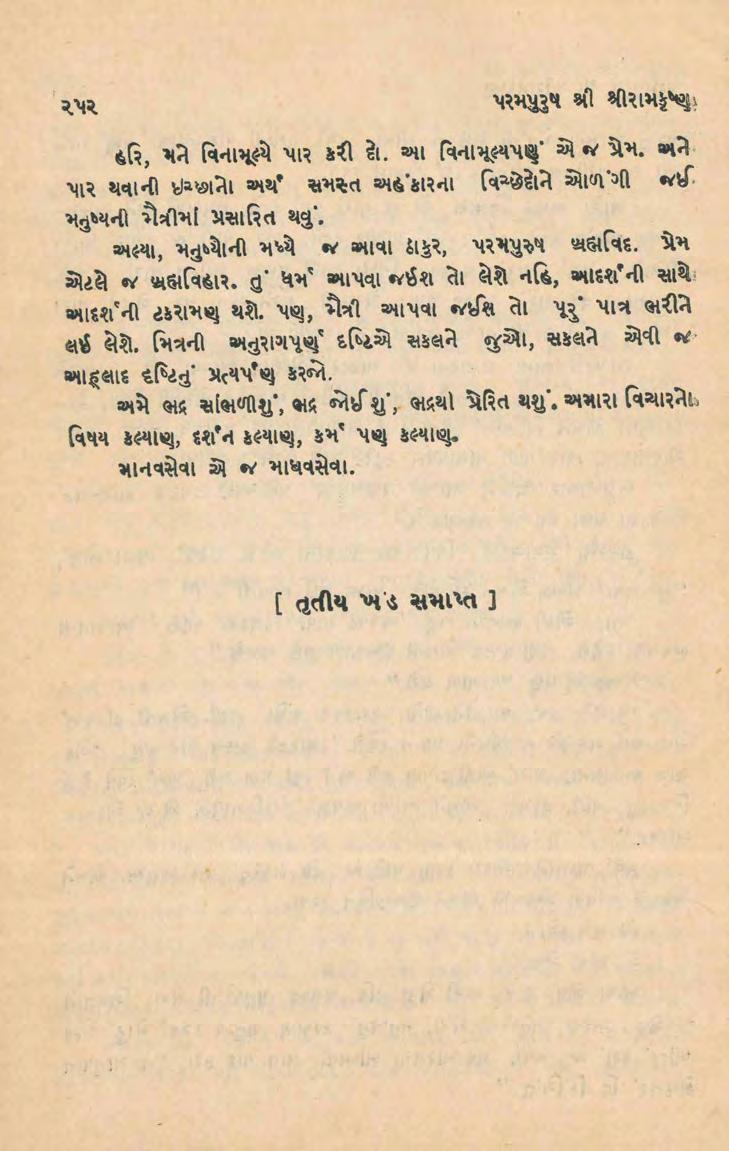 ૨૫૨ પરમપુરુષ શ્રી શ્રીરામકૃષ્ણ
હરિ, મને વિનામૂલ્યે પાર કરી દો. આ વિનામૂલ્યપણું એ જ પ્રેમ. અને
પાર થવાની ઇચ્છાનો અર્થ સમસ્ત અહંકારના વિચ્છેદોને ઓળંગી જઈ
મનુષ્યની મૈત્રીમાં પ્રસારિત થવું.
અલ્યા, મનુષ્યોની મધ્યે જ આવા ઠાકુર, પરમપુરુષ બ્રહ્મવિદ. પ્રેમ
એટલે જ બ્રહ્મવિહાર. તું ધર્મ આપવા જઈશ તો લેશે નહિ, આદર્શની સાથે
આદર્શની ટકરામણ થશે. પણ, મૈત્રી આપવા જઈસ તો પૂરું પાત્ર ભરીને
લઈ લેશે. મિત્રની અનુરાગપૂર્ણ દૃષ્ટિએ સકલને જુઓ, સકલને એવી જ
આહ્લાદ દૃષ્ટિનું પ્રત્યર્પણ કરજો.
અમે ભદ્ર સાંભળીશું, ભદ્ર જોઈશું, ભદ્રથી પ્રેરિત થશું. અમારા વિચારનો
વિષય કલ્યાણ, દર્શન કલ્યાણ, કર્મ પણ કલ્યાણ.
માનવસેવા એ જ માધવસેવા.
[ તૃતીય ખંડ સમાપ્ત ]